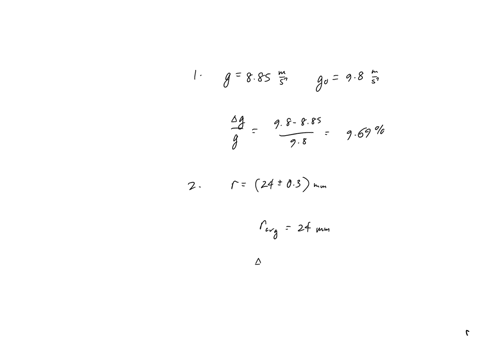 1. g = 8.85 m/s² g₀ = 9.8 m/s²
Δg/g = (9.8 - 8.85)/9.8 = 9.69%
2. r = (24 ± 0.3) mm
r avg = 24 mm
Δ